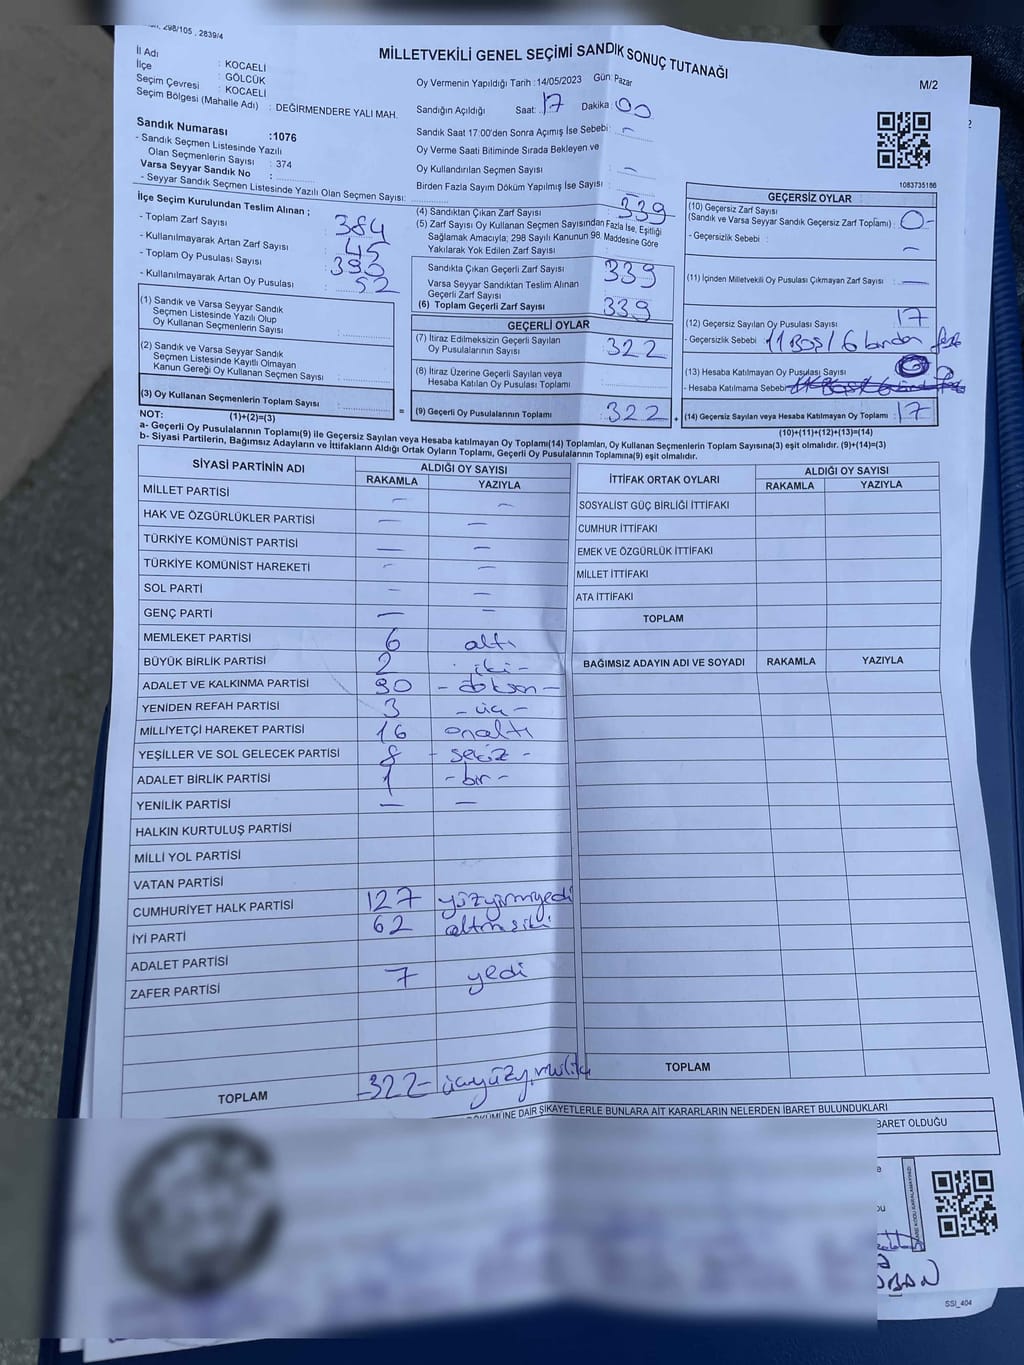 298/105 , 2839/4
MİLLETVEKİLİ GENEL SEÇİMİ SANDIK SONUÇ TUTANAĞI
M/2
İl Adı : KOCAELİ
İlçe : GÖLCÜK
Seçim Çevresi : KOCAELİ
Seçim Bölgesi (Mahalle Adı) : DEĞİRMENDERE YALI MAH.
Sandık Numarası :1076
- Sandık Seçmen Listesinde Yazılı
Olan Seçmenlerin Sayısı : 374
Varsa Seyyar Sandık No :
- Seyyar Sandık Seçmen Listesinde Yazılı Olan Seçmen Sayısı:
Oy Vermenin Yapıldığı Tarih : 14/05/2023 Gün: Pazar
Sandığın Açıldığı Saat: 17 Dakika: 00
Sandık Saat 17.00'den Sonra Açılmış İse Sebebi: —
Oy Verme Saati Bitiminde Sırada Bekleyen ve
Oy Kullandırılan Seçmen Sayısı —
Birden Fazla Sayım Döküm Yapılmış İse Sayısı —
1083735186
İlçe Seçim Kurulundan Teslim Alınan ;
- Toplam Zarf Sayısı : 384
- Kullanılmayarak Artan Zarf Sayısı : 45
- Toplam Oy Pusulası Sayısı :
- Kullanılmayarak Artan Oy Pusulası : 52
(1) Sandık ve Varsa Seyyar Sandık
Seçmen Listesinde Yazılı Olup
Oy Kullanan Seçmenlerin Sayısı :
(2) Sandık ve Varsa Seyyar Sandık
Seçmen Listesinde Kayıtlı Olmayan
Kanun Gereği Oy Kullanan Seçmen Sayısı :
(3) Oy Kullanan Seçmenlerin Toplam Sayısı :
(4) Sandıktan Çıkan Zarf Sayısı : 339
(5) Zarf Sayısı Oy Kullanan Seçmen Sayısından Fazla İse, Eşitliği
Sağlamak Amacıyla; 298 Sayılı Kanunun 98. Maddesine Göre
Yakılarak Yok Edilen Zarf Sayısı :
Sandıkta Çıkan Geçerli Zarf Sayısı : 339
Varsa Seyyar Sandıktan Teslim Alınan
Geçerli Zarf Sayısı :
(6) Toplam Geçerli Zarf Sayısı : 339
GEÇERLİ OYLAR
(7) İtiraz Edilmeksizin Geçerli Sayılan
Oy Pusulalarının Sayısı : 322
(8) İtiraz Üzerine Geçerli Sayılan veya
Hesaba Katılan Oy Pusulası Toplamı :
= (9) Geçerli Oy Pusulalarının Toplamı : 322 +
GEÇERSİZ OYLAR
(10) Geçersiz Zarf Sayısı
(Sandık ve Varsa Seyyar Sandık Geçersiz Zarf Toplamı) : 0-
- Geçersizlik Sebebi : —
(11) İçinden Milletvekili Oy Pusulası Çıkmayan Zarf Sayısı : —
(12) Geçersiz Sayılan Oy Pusulası Sayısı : 17
- Geçersizlik Sebebi : 11 BOŞ / 6 birden
(13) Hesaba Katılmayan Oy Pusulası Sayısı :
- Hesaba Katılmama Sebebi:
(14) Geçersiz Sayılan veya Hesaba Katılmayan Oy Toplamı : 17
NOT: (1)+(2)=(3)
(10)+(11)+(12)+(13)=(14)
a- Geçerli Oy Pusulalarının Toplamı(9) ile Geçersiz Sayılan veya Hesaba katılmayan Oy Toplamı(14) Toplamları, Oy Kullanan Seçmenlerin Toplam Sayısına(3) eşit olmalıdır. (9)+(14)=(3)
b- Siyasi Partilerin, Bağımsız Adayların ve İttifakların Aldığı Ortak Oyların Toplamı, Geçerli Oy Pusulalarının Toplamına(9) eşit olmalıdır.
SİYASİ PARTİNİN ADI ALDIĞI OY SAYISI
RAKAMLA YAZIYLA
MİLLET PARTİSİ — —
HAK VE ÖZGÜRLÜKLER PARTİSİ — —
TÜRKİYE KOMÜNİST PARTİSİ — —
TÜRKİYE KOMÜNİST HAREKETİ — —
SOL PARTİ — —
GENÇ PARTİ — —
MEMLEKET PARTİSİ 6 altı
BÜYÜK BİRLİK PARTİSİ 2 iki -
ADALET VE KALKINMA PARTİSİ 90 - doksan -
YENİDEN REFAH PARTİSİ 3 - üç -
MİLLİYETÇİ HAREKET PARTİSİ 16 onaltı
YEŞİLLER VE SOL GELECEK PARTİSİ 8 - sekiz -
ADALET BİRLİK PARTİSİ 1 - bir -
YENİLİK PARTİSİ — —
HALKIN KURTULUŞ PARTİSİ
MİLLİ YOL PARTİSİ
VATAN PARTİSİ
CUMHURİYET HALK PARTİSİ 127 yüzyirmiyedi
İYİ PARTİ 62 altmışiki
ADALET PARTİSİ
ZAFER PARTİSİ 7 yedi
TOPLAM -322- üçyüzyirmiiki
İTTİFAK ORTAK OYLARI ALDIĞI OY SAYISI
RAKAMLA YAZIYLA
SOSYALİST GÜÇ BİRLİĞİ İTTİFAKI
CUMHUR İTTİFAKI
EMEK VE ÖZGÜRLÜK İTTİFAKI
MİLLET İTTİFAKI
ATA İTTİFAKI
TOPLAM
BAĞIMSIZ ADAYIN ADI VE SOYADI RAKAMLA YAZIYLA
TOPLAM
DÖKÜMÜNE DAİR ŞİKAYETLERLE BUNLARA AİT KARARLARIN NELERDEN İBARET BULUNDUKLARI
BARET OLDUĞU
SSI_404